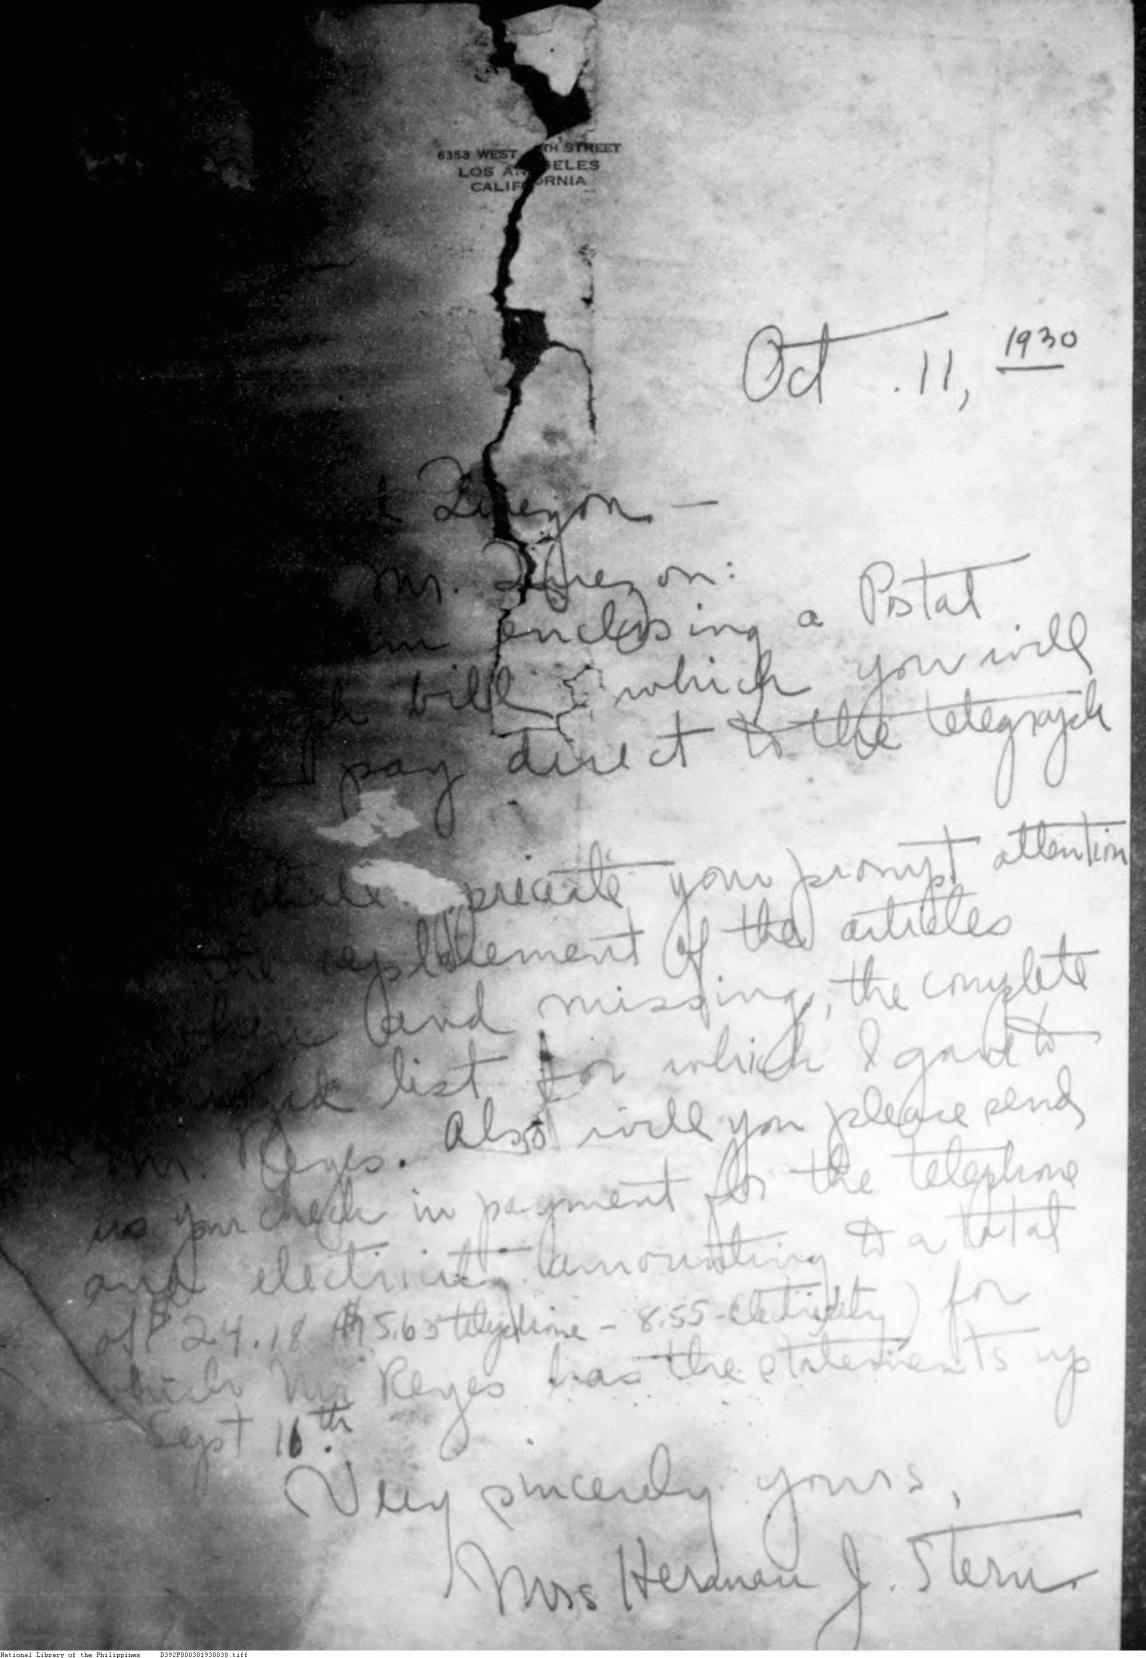 6353 WEST TH STREET
LOS ANGELES
CALIFORNIA
Oct. 11, 1930
Quezon —
Mr. Quezon:
am enclosing a Postal
bill which you will
pay direct to the telegraph
preciate your prompt attention
the replacement of the articles
and missing, the complete
list for which I gave to
Mr. Reyes. Also will you please send
us your check in payment for the telephone
and electricity amounting to a total
of 24.18 telephone - 8.55 - electricity) for
which Mr Reyes has the statements up
Sept 16th.
Very sincerely yours,
Mrs Herman J. Stern.
National Library of the Philippines D392P000301930038.tiff